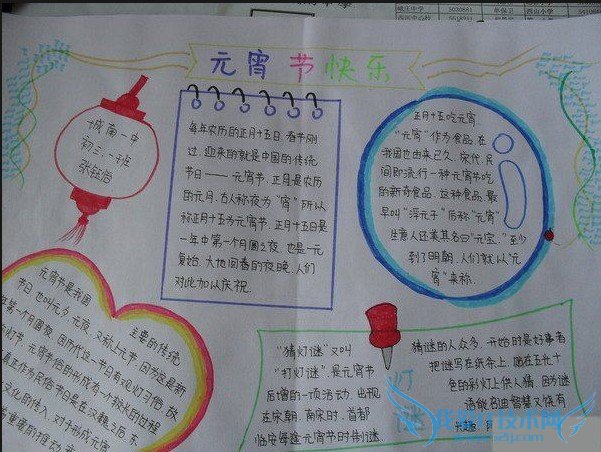 元宵节快乐
城南一中
初三、一班
每年农历的正月十五日,春节刚
过,迎来的就是中国的传统
节日——元宵节,正月是农历
的元月,古人称夜为“宵”所以
称正月十五为元宵节,正月十五日是
一年中第一个月圆之夜,也是一元
复始,大地回春的夜晚,人们
对此加以庆祝.
正月十五吃元宵
“元宵”作为食品,在
我国也由来已久,宋代,民
间即流行一种元宵节吃
的新奇食品,这种食品,最
早叫“浮元子”后称“元宵”
生意人还美其名曰“元宝”.至少
到了明朝,人们就以“元
宵”来称.
元宵节是我国
主要的传统
节日,也叫元夕,元夜,又称上元节,因
第一个月圆夜,因历代这一节日有观灯习俗,故
灯节,元宵节俗的形成有一个较长的过程
真正作为民俗节日是在汉魏之后.东
文化的传入,对于形成元宵
重要的推动
“猜灯谜”又叫
“打灯谜”是元宵节
后增的一项活动,出现
在宋朝.南宋时,首都
临安每逢元宵节时制谜,
灯
谜
猜谜的人众多,开始时是好事者
把谜写在纸条上,贴在五光十
色的彩灯上供人猜,因为谜
语能启迪智慧又饶有